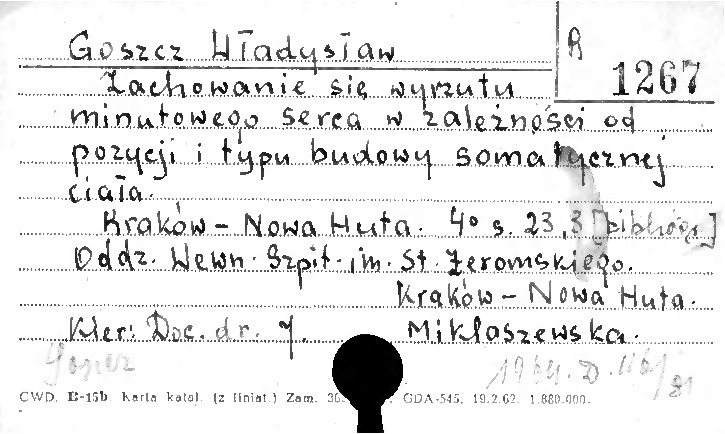 Goszcz Władysław
B
1267
Zachowanie się wyrzutu
minutowego serca w zależności od
pozycji i typu budowy somatycznej
ciała.
Kraków - Nowa Huta. 4° s. 23,3 [bibliogr]
Oddz. Wewn. Szpit. im. St. Żeromskiego.
Kraków - Nowa Huta.
Kier: Doc. dr. J. Mikłaszewska.
Goszcz
CWD. B-15b. Karta katal. (z liniat.) Zam. GDA-545, 19.2.62. 1.880.000.